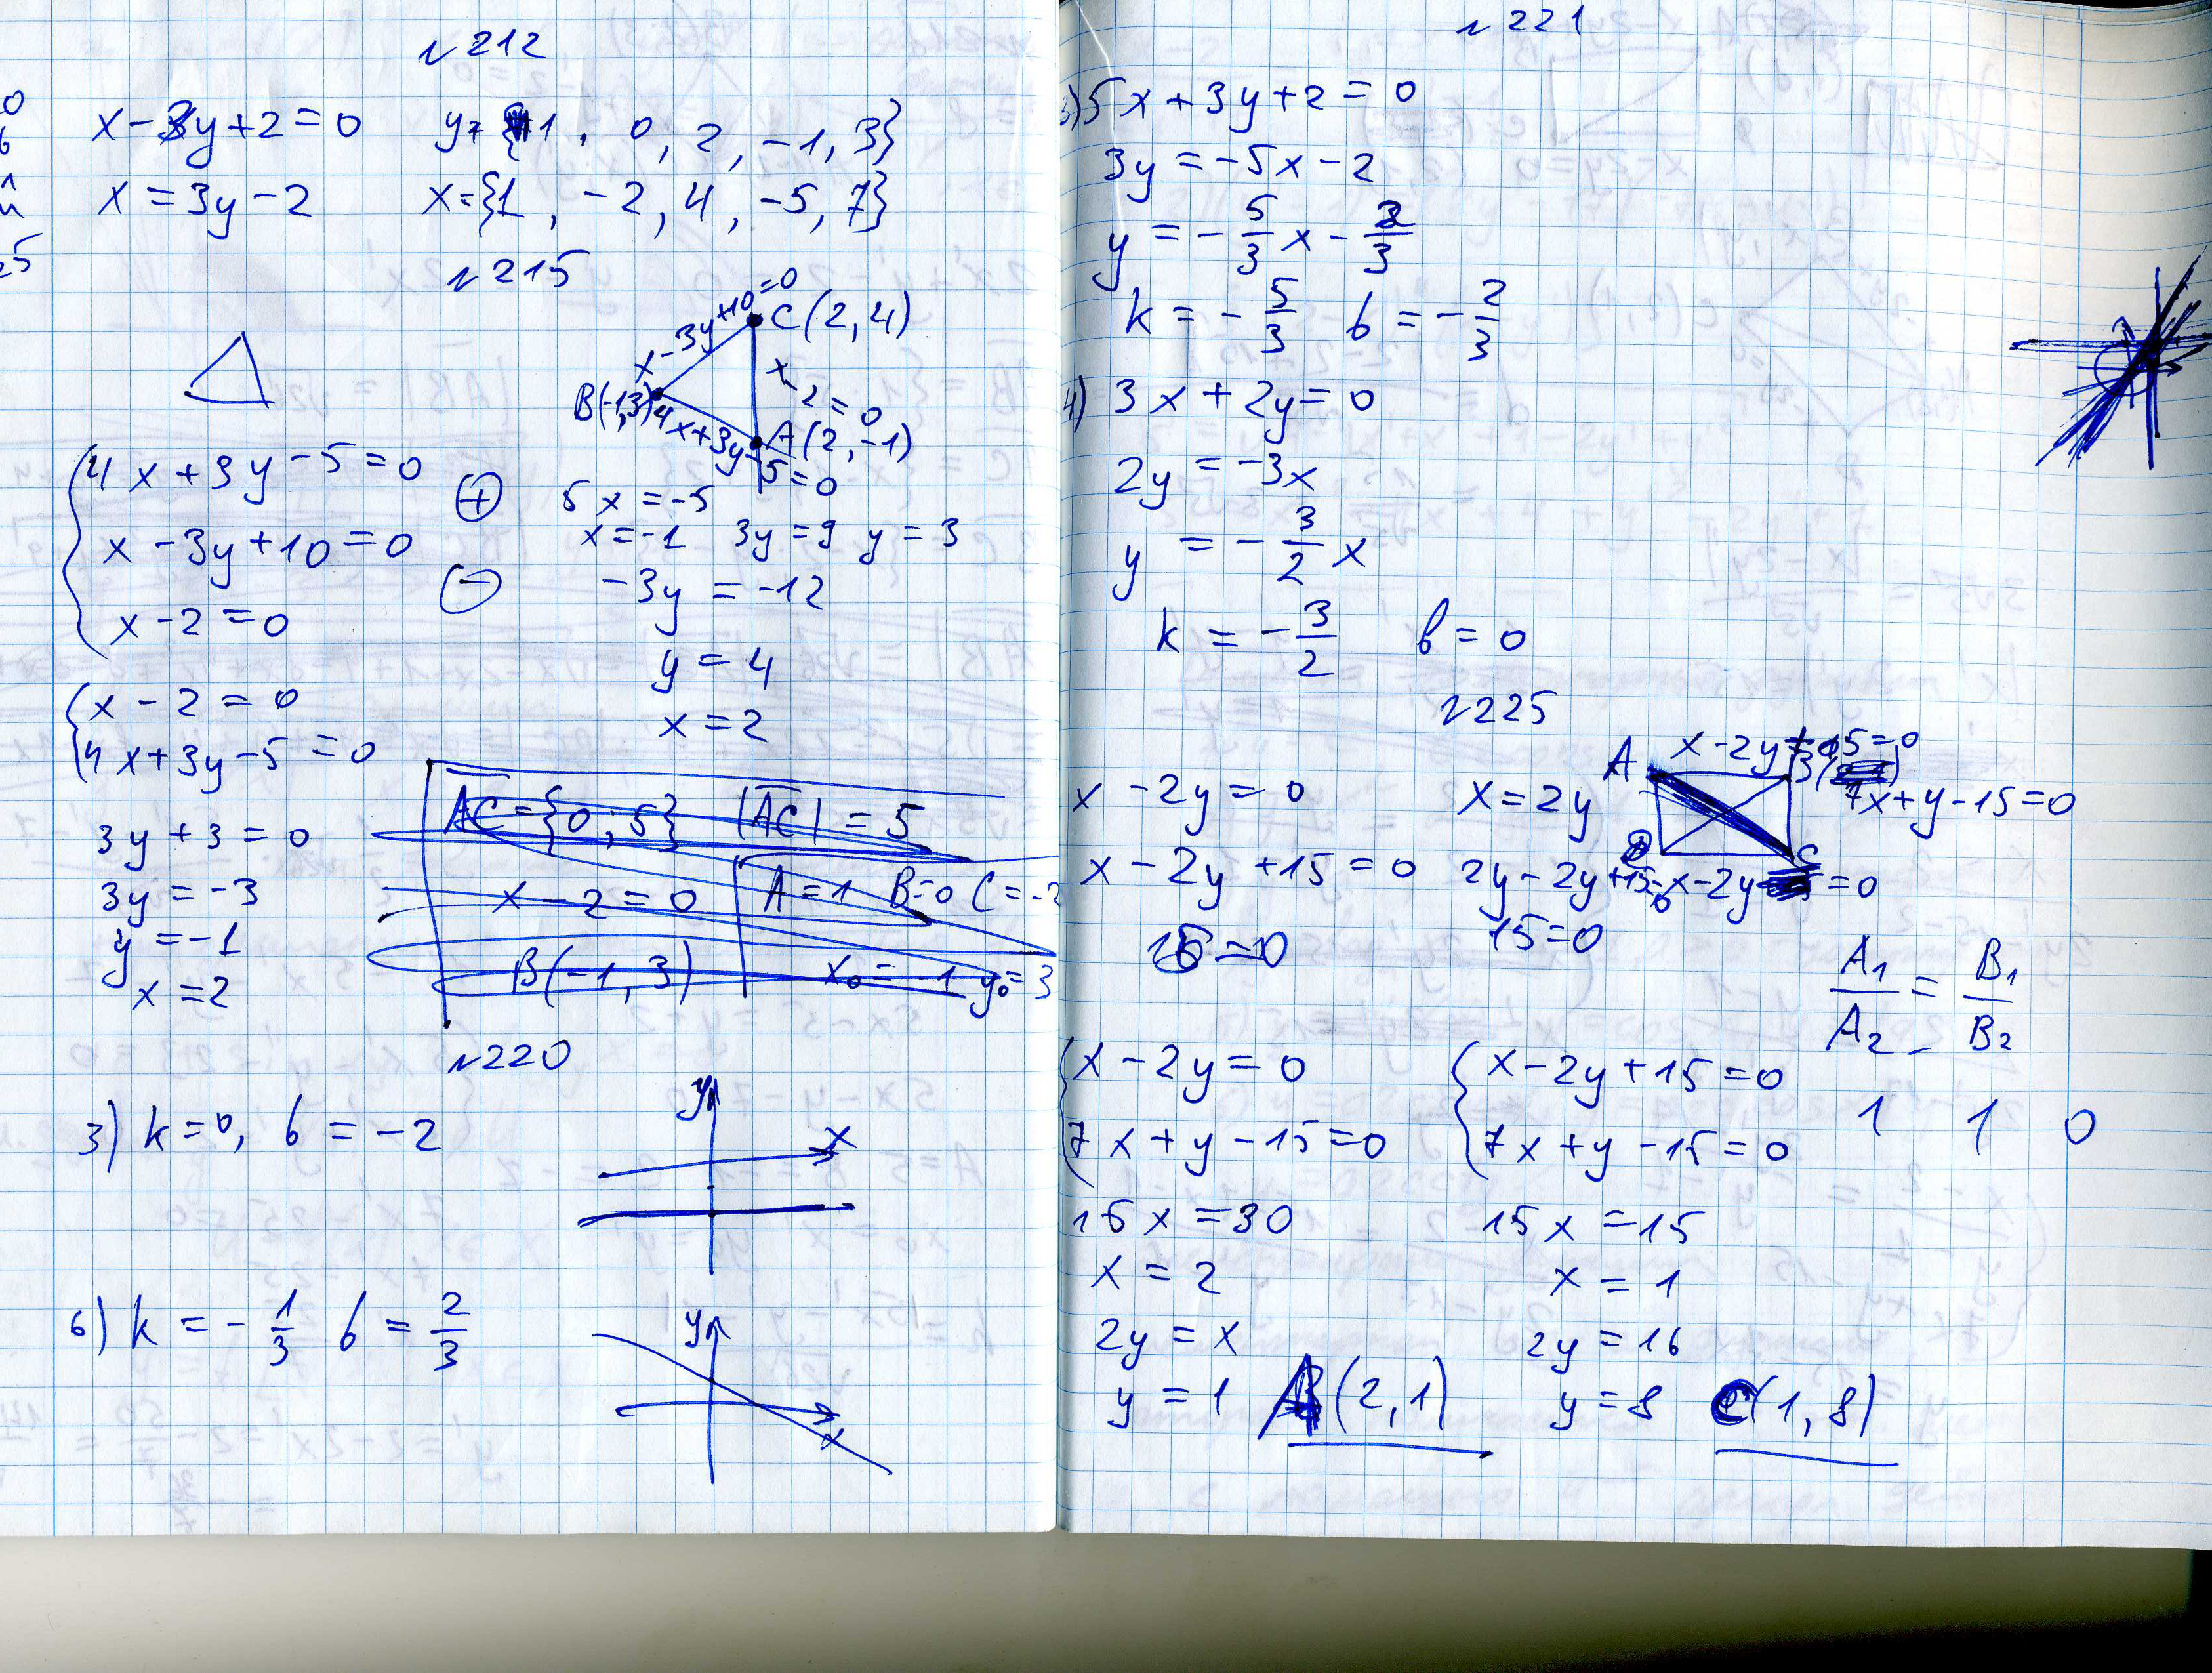 N212
x-3y+2=0 y={1, 0, 2, -1, 3}
x=3y-2 x={1, -2, 4, -5, 7}
N215
C(2,4)
x-3y+10=0
x-2=0
B(-1,3)
4x+3y-5=0
A(2,-1)
4x+3y-5=0
x-3y+10=0
x-2=0
⊕ 5x=-5
x=-1 3y=9 y=3
⊖ -3y=-12
y=4
x=2
x-2=0
4x+3y-5=0
3y+3=0
3y=-3
y=-1
x=2
AC={0;5} |AC|=5
x-2=0 A=1 B=0 C=-2
B(-1,3) x₀=-1 y₀=3
N220
3) k=0, b=-2
y
x
6) k=-1/3 b=2/3
y
x
N221
5x+3y+2=0
3y=-5x-2
y=-5/3x-2/3
k=-5/3 b=-2/3
4) 3x+2y=0
2y=-3x
y=-3/2x
k=-3/2 b=0
N225
A x-2y+15=0
B
7x+y-15=0
C
x-2y=0
x-2y=0 x=2y
x-2y+15=0 2y-2y+15=0
15=0 15=0
A₁/A₂=B₁/B₂
1 1 0
x-2y=0
7x+y-15=0
15x=30
x=2
2y=x
y=1 A(2,1)
x-2y+15=0
7x+y-15=0
15x=15
x=1
2y=16
y=8 C(1,8)